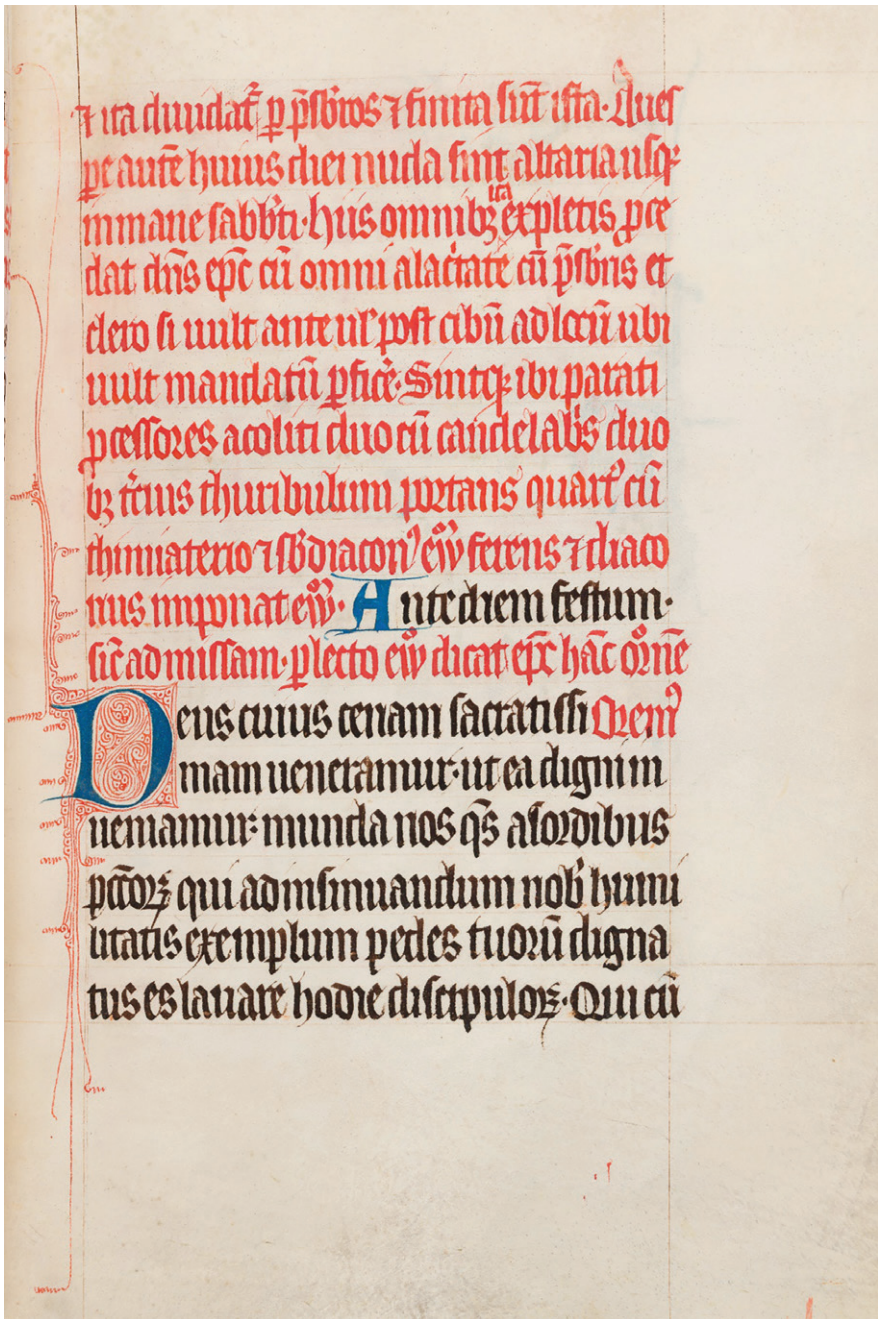 ⁊ ita diuidat᷑ ꝑ p̄sb̄ros ⁊ finita sūt ista. A ues
ꝑe autē huius diei nuda sint altaria usqꝫ
in mane sabb̄ti. hiis omnibꝫ ita expletis ꝓce
dat dn̄s ep̄c cū omni alac̓tate cū p̄sb̄ris et
clero si uult ante ul̓ post cibū ad locū ubi
uult mandatū ꝑfice᷑. Sintqꝫ ibi parati
ꝓcessores acoliti duo cū candelab̓s duo
bꝫ t̓cius thuribulum portans quart᷒ cū
thimiaterio ⁊ sb̄diacon᷒ ew̄ ferens ⁊ diaco
nus imponat ew̄. Ante diem festum.
sic̄ ad missam. ꝑlecto ew̄ dicat ep̄c hāc or̄onē
Deus cuius cenam sacratissi Orem᷒
mam ueneramur. ut ea digni in
ueniamur: munda nos q̄s a sordibus
pcc̄oꝝ qui ad insinuandum nob̓ humi
litatis exemplum pedes tuorū digna
tus es lauare hodie discipuloꝝ. Qui cū